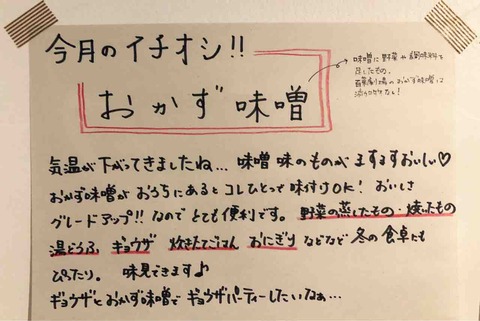 今月のイチオシ!!
おかず味噌
味噌に野菜や調味料を
足したもの。
気温が下がってきましたね… 味噌味のものがますますおいしい♡
おかず味噌がおうちにあるとコレひとつで味付けOK! おいしさ
グレードアップ!! なのでとても便利です。 野菜の蒸したもの・焼いたもの
温どうふ ギョウザ 炊きたてごはん おにぎり などなど 冬の食卓にも
ぴったり。 味見できます♪
ギョウザとおかず味噌でギョウザパーティーしたいなぁ…